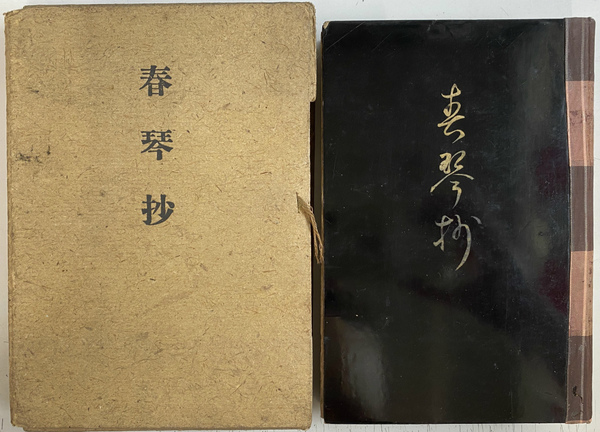 春琴抄
春琴抄